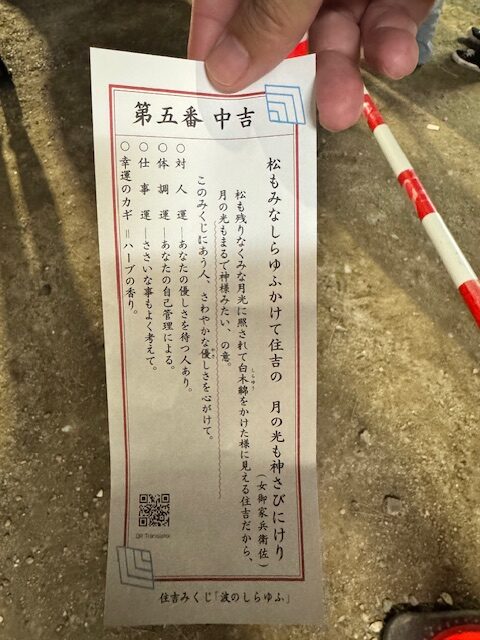 第五番 中吉
松もみなしらゆふかけて住吉の 月の光も神さびにけり
(女御家兵衛佐)
松も残りなくみな月光に照されて白木綿をかけた様に見える住吉だから、
しらゆう
月の光もまるで神様みたい、の意。
このみくじにあう人、さわやかな優しさを心がけて。
やさ
○対人運―あなたの優しさを待つ人あり。
○体調運―あなたの自己管理による。
○仕事運―ささいな事もよく考えて。
○幸運のカギ=ハーブの香り。
QR Translator
住吉みくじ「波のしらゆふ」